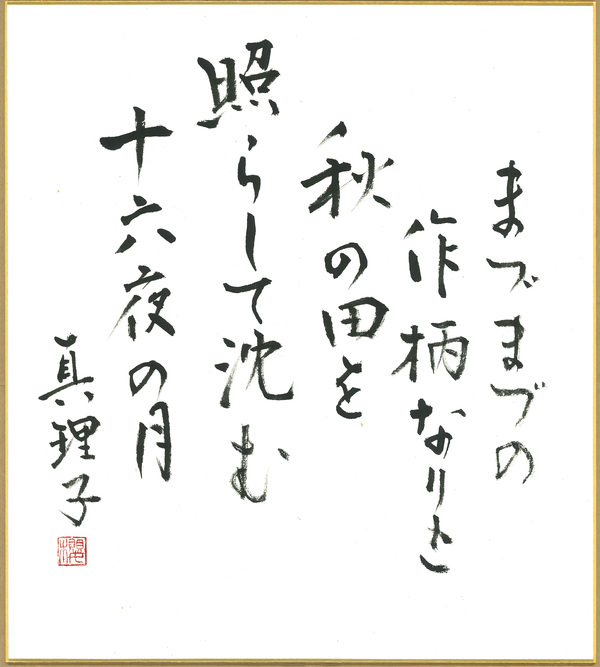 まづまづの
作柄なりと
秋の田を
照らして沈む
十六夜の月
真理子